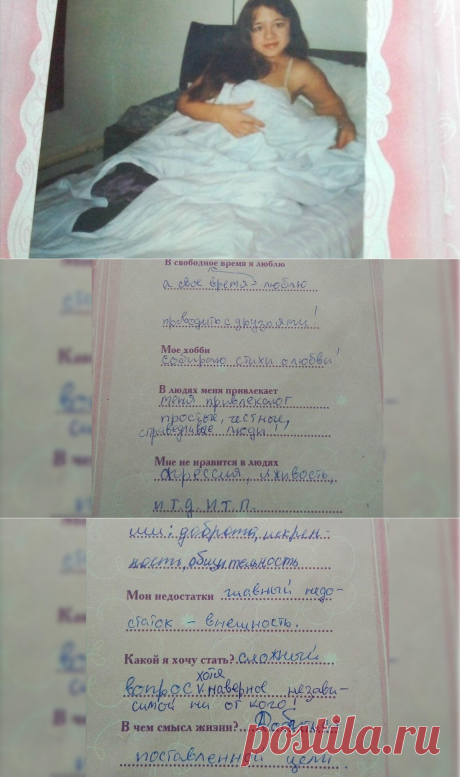 В свободное время я люблю
а свое время люблю
проводить с друзьями!
Мое хобби
собираю стихи о любви!
В людях меня привлекает
меня привлекают
простые, честные,
справедливые люди!
Мне не нравится в людях
агрессия, лживость,
и.т.д. и.т.п.
ми: доброта, искрен-
ность, общительность
Мои недостатки главный недо-
статок - внешность.
Какой я хочу стать? сложный
хотя
вопрос v наверное незави-
симой ни от кого!
В чем смысл жизни?
поставленной цели.
postila.ru